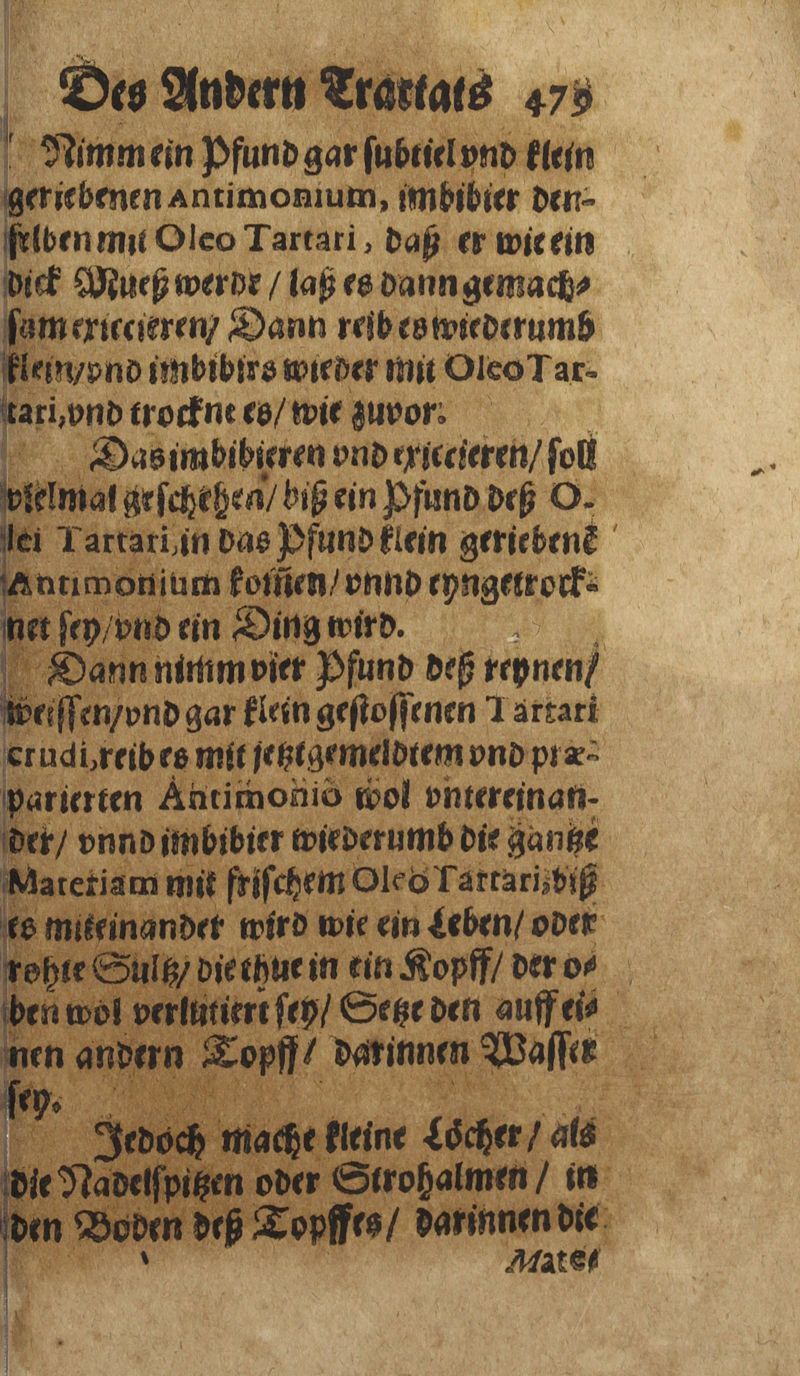 Des Andern Tractats 479
Nimm ein Pfund gar subtiel vnd klein
geriebenen Antimonium, imbibier den-
selben mit Oleo Tartari, daß er wie ein
dick Mueß werde / laß es dann gemach-
sam exiccieren / Dann reib es wiederumb
klein / vnd imbibirs wieder mit Oleo Tar-
tari, vnd trockne es / wie zuvor.
Das imbibieren vnd exiccieren / soll
vielmal geschehen / biß ein Pfund deß O-
lei Tartari, in das Pfund klein geriebenē
Antimonium kom̄en / vnnd eyngetrock-
net sey / vnd ein Ding wird.
Dann nimm vier Pfund deß reynen /
weissen / vnd gar klein gestossenen Tartari
crudi, reib es mit jetztgemeldtem vnd præ-
parierten Antimonio wol vntereinan-
der / vnnd imbibier wiederumb die gantze
Materiam mit frischem Oleo Tartari, biß
es miteinander wird wie ein Leben / oder
rohte Sultz / die thue in ein Kopff / der o-
ben wol verlutiert sey / Setze den auff ei-
nen andern Topff / darinnen Wasser
sey.
Jedoch mache kleine Löcher / als
die Nadelspitzen oder Strohalmen / in
den Boden deß Topffes / darinnen die
Mate-